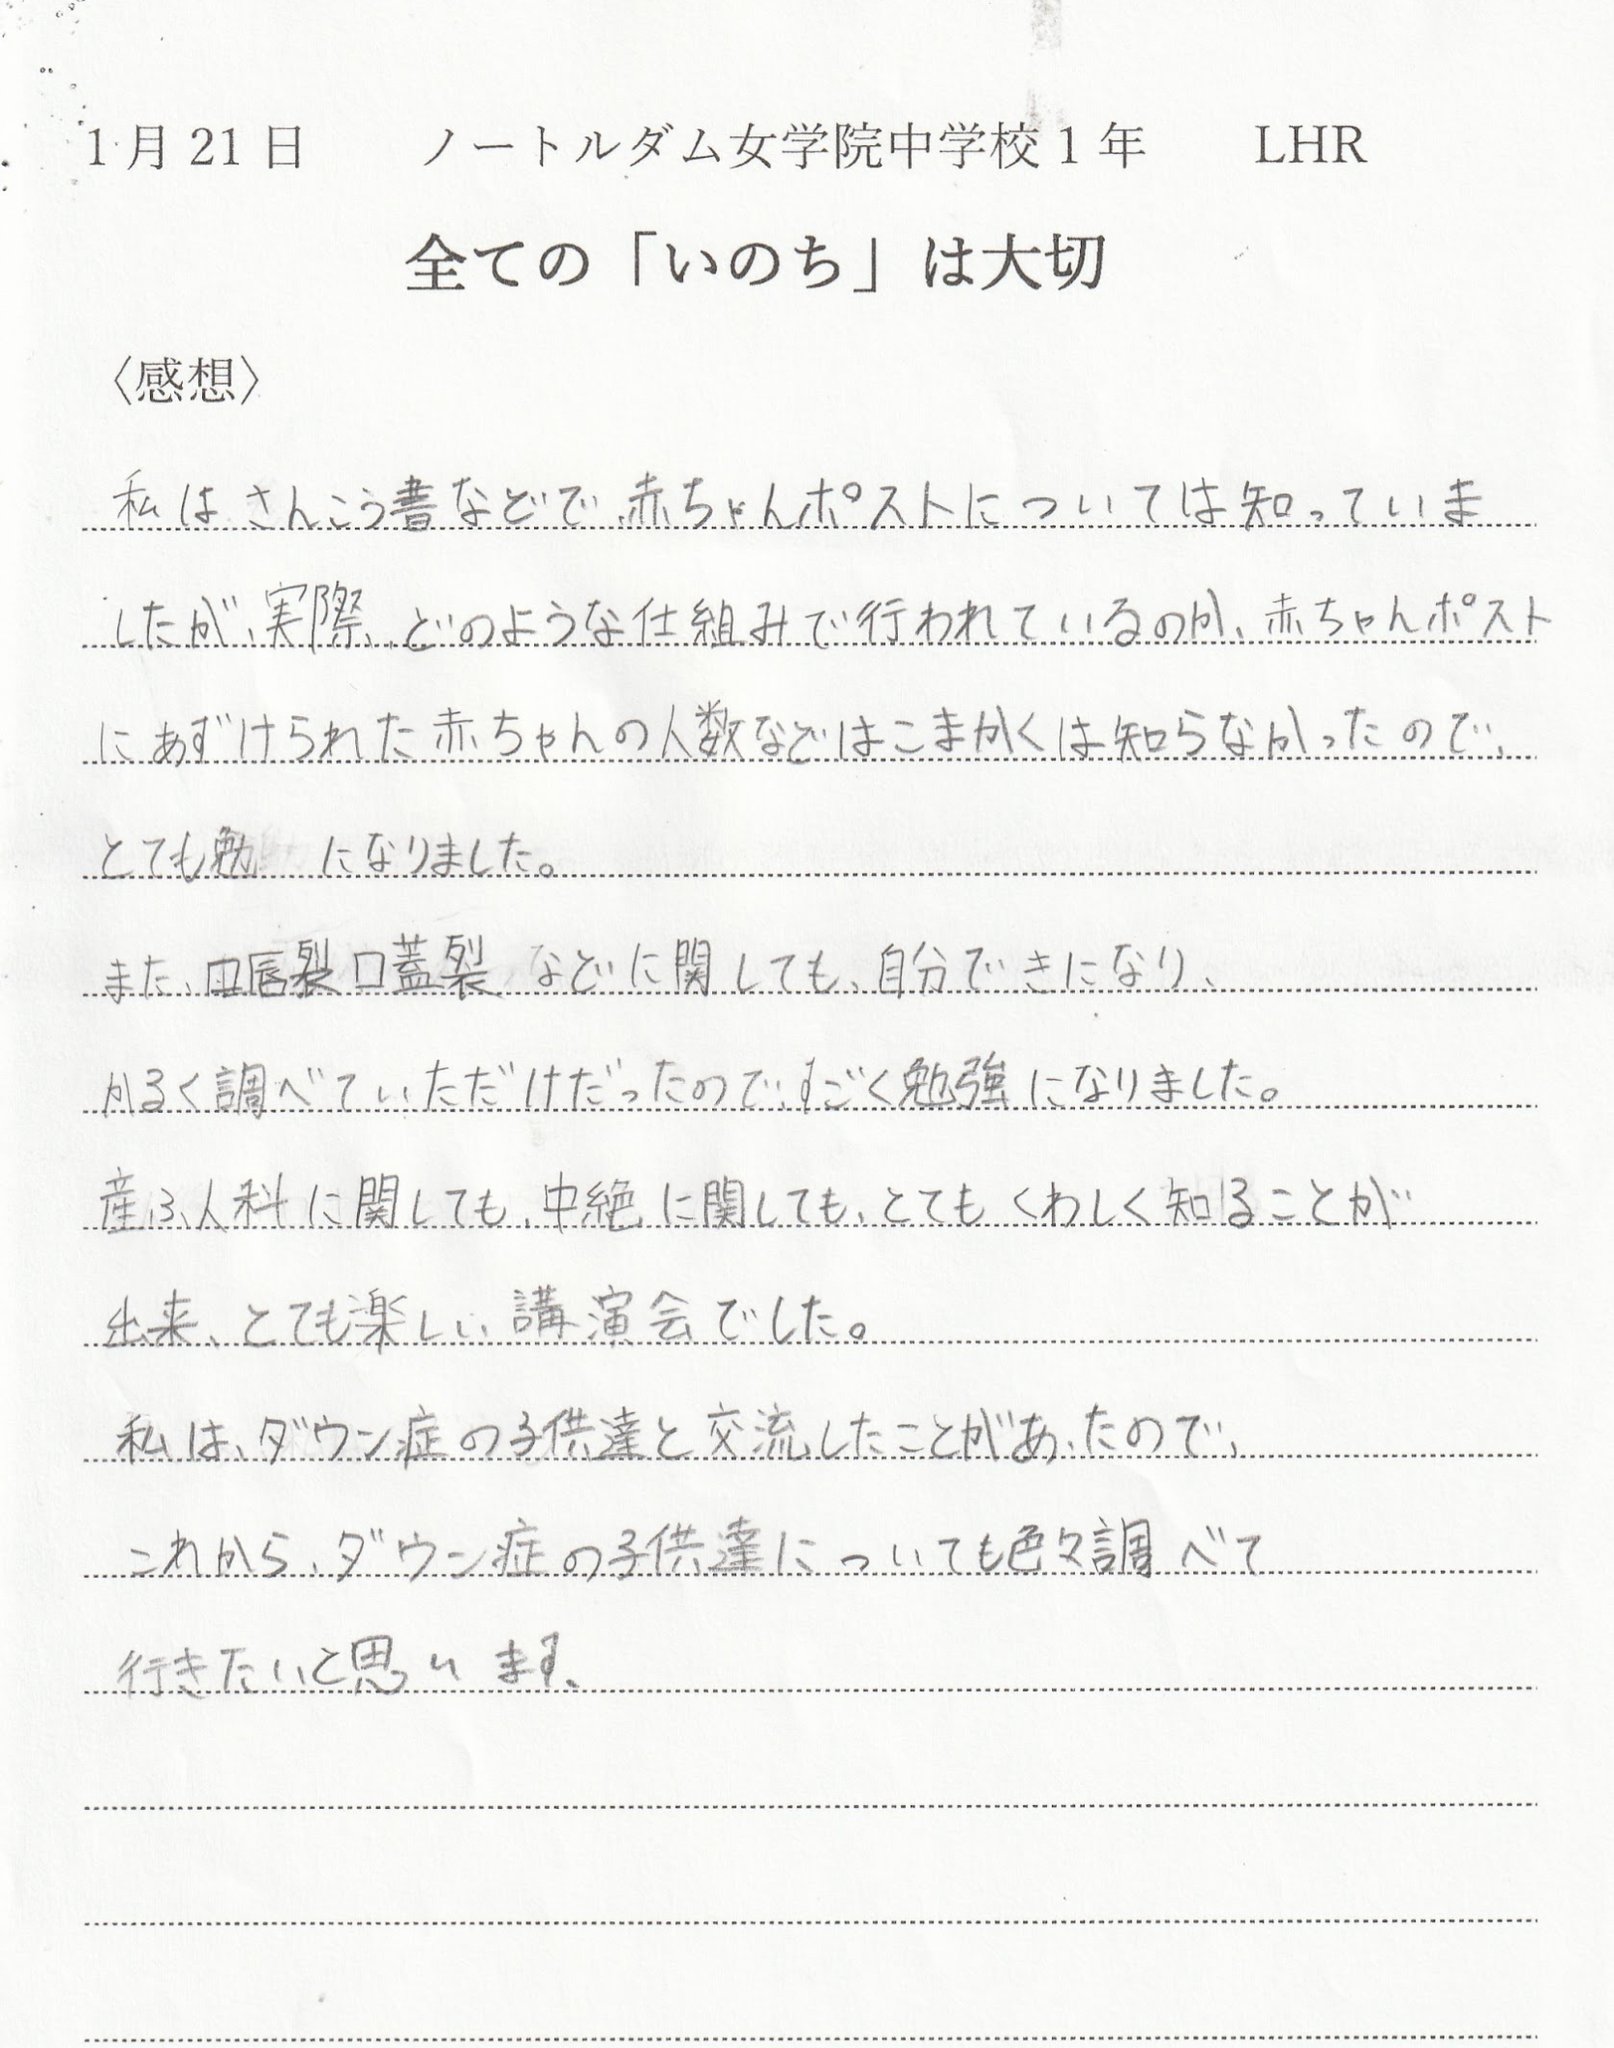 1月21日　　ノートルダム女学院中学校1年　　LHR
全ての「いのち」は大切
〈感想〉
私はさんこう書などで、赤ちゃんポストについては知っていま
したが、実際、どのような仕組みで行われているのか、赤ちゃんポスト
にあずけられた赤ちゃんの人数などはこまかくは知らなかったので、
とても勉　になりました。
また、口唇裂口蓋裂などに関しても、自分できになり、
かるく調べていただけだったので、すごく勉強になりました。
産ふ人科に関しても、中絶に関しても、とてもくわしく知ることが
出来、とても楽しい講演会でした。
私は、ダウン症の子供達と交流したことがあったので、
これから、ダウン症の子供達についても色々調べて
行きたいと思います。